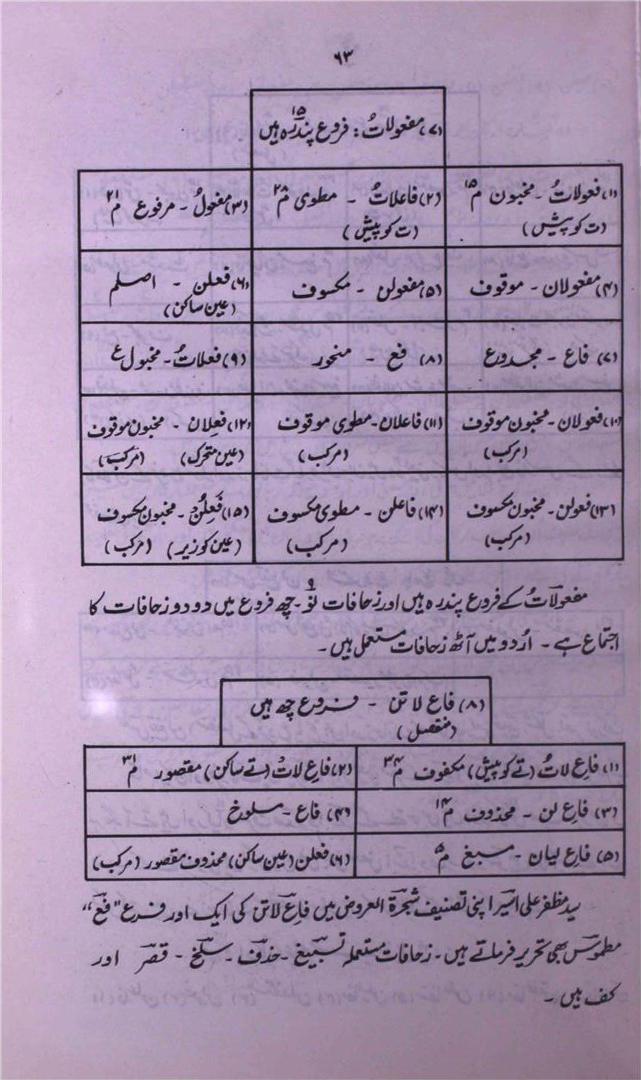 ۶۳
(۷) مفعولاتُ: فروع پندرہ ہیں ۱۵
(۱) فعولاتُ - مخبون م ۱۵ (ت کو پیش)
(۲) فاعلاتُ - مطوی م ۲۸ (ت کو پیش)
(۳) مفعولُ - مرفوع م ۲۱
(۴) مفعولان - موقوف
(۵) مفعولن - مکسوف
(۶) فعلن - اصلم (عین ساکن)
(۷) فاع - مجدوع
(۸) فع - منحور
(۹) فعلاتُ - مخبول ع
(۱۰) فعولان - مخبون موقوف (مرکب)
(۱۱) فاعلان - مطوی موقوف (مرکب)
(۱۲) فعِلان - مخبون موقوف (عین متحرک) (مرکب)
(۱۳) فعولن - مخبون مکسوف (مرکب)
(۱۴) فاعلن - مطوی مکسوف (مرکب)
(۱۵) فَعِلُن - مخبون مکسوف (عین کو زیر) (مرکب)
مفعولاتُ کے فروع پندرہ ہیں اور زحافات نو ۹ - چھ فروع میں دو دو زحافات کا
اجتماع ہے - اُردو میں آٹھ زحافات مستعمل ہیں -
(۸) فاع لاتن - فروع چھ ہیں
(منفصل)
(۱) فاع لاتُ (تے کو پیش) مکفوف م ۳۴
(۲) فاع لاتْ (تے ساکن) مقصور م ۳۱
(۳) فاع لن - محذوف م ۱۴
(۴) فاع - مسلوخ
(۵) فاع لیان - مسبغ م ۵
(۶) فعلن (عین ساکن) محذوف مقصور (مرکب)
سید مظفر علی اسیر اپنی تصنیف شجرۃ العروض میں فاع لاتن کی ایک اور فرع "فع"
مطموس بھی تحریر فرماتے ہیں - زحافات مستعملہ تسبیغ - حذف - سلخ - قصر اور
کف ہیں -